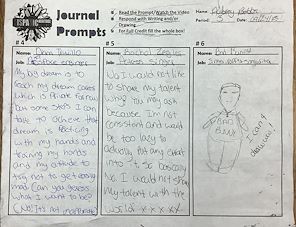 Journal
Prompts
Read the Prompt/Watch the Video
Respond with Writing and/or
Drawing
For Full Credit fill the whole box!
Name:
Period: 3 Date:
#4
#5
#6
Name:
Job:
My big dream is to
reach my dream career
which is private for now
but some steps I can
take to achieve that
dream is
with my hands and
my hands
and my attitude to
try not to get easily
mad. Can you guess
what I want to be?
(No! It's not inappropriate)
Name: Rachel Zegler
Job: Singer
No I would not like
to share my talent
why you may ask
because I'm not
consistent and would
be too lazy to
actually put any effort
into it. So basically
No. I would not share
my talent with the
world xx x xx
Name: Bad Bunny
Job:
BAD
BUNNY
I can't
draw